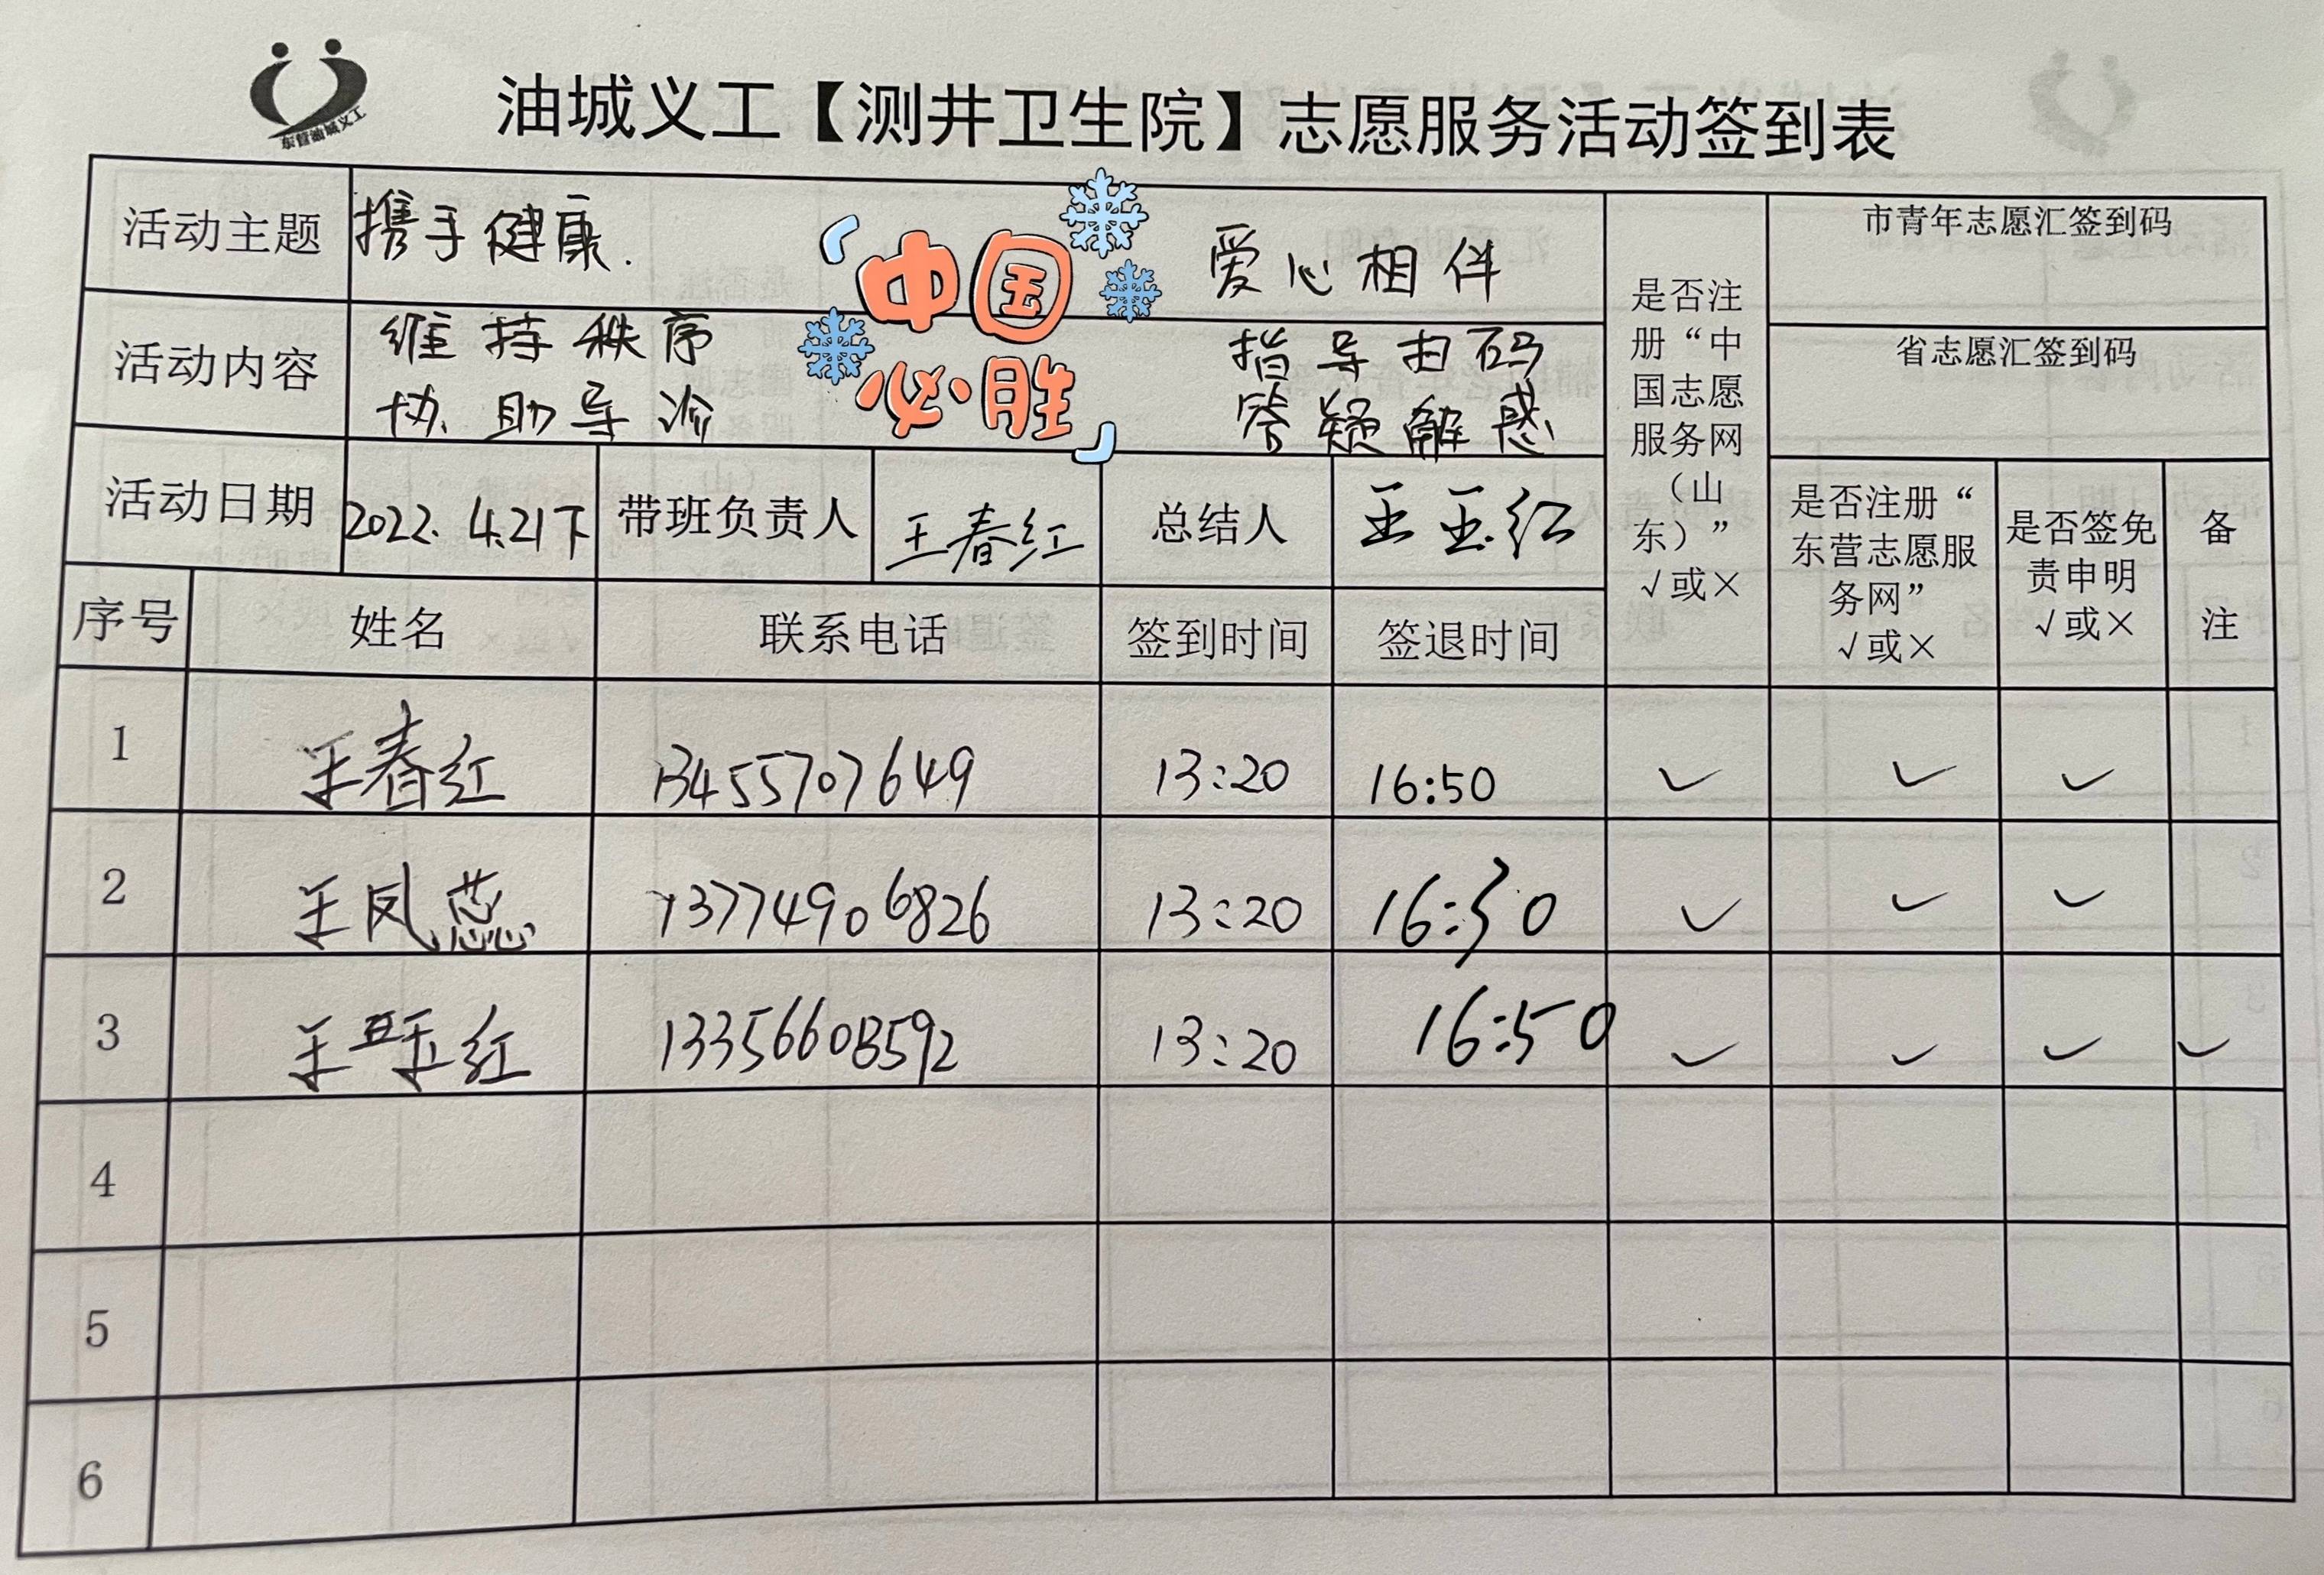 东营油城义工
油城义工【测井卫生院】志愿服务活动签到表
活动主题 携手健康. 爱心相伴
「中国
必胜」
活动内容 维持秩序 指导扫码
协助导诊 答疑解惑
是否注
册“中
国志愿
服务网
（山
东）”
√或×
市青年志愿汇签到码
省志愿汇签到码
活动日期 2022.4.21下 带班负责人 王春红 总结人 王玉红
是否注册“
东营志愿服
务网”
√或×
是否签免
责申明
√或×
备
注
序号 姓名 联系电话 签到时间 签退时间
1 王春红 13455707649 13:20 16:50 ✓ ✓ ✓
2 王凤蕊 13774906826 13:20 16:30 ✓ ✓ ✓
3 王玉红 13356603592 13:20 16:50 ✓ ✓ ✓ ✓
4
5
6